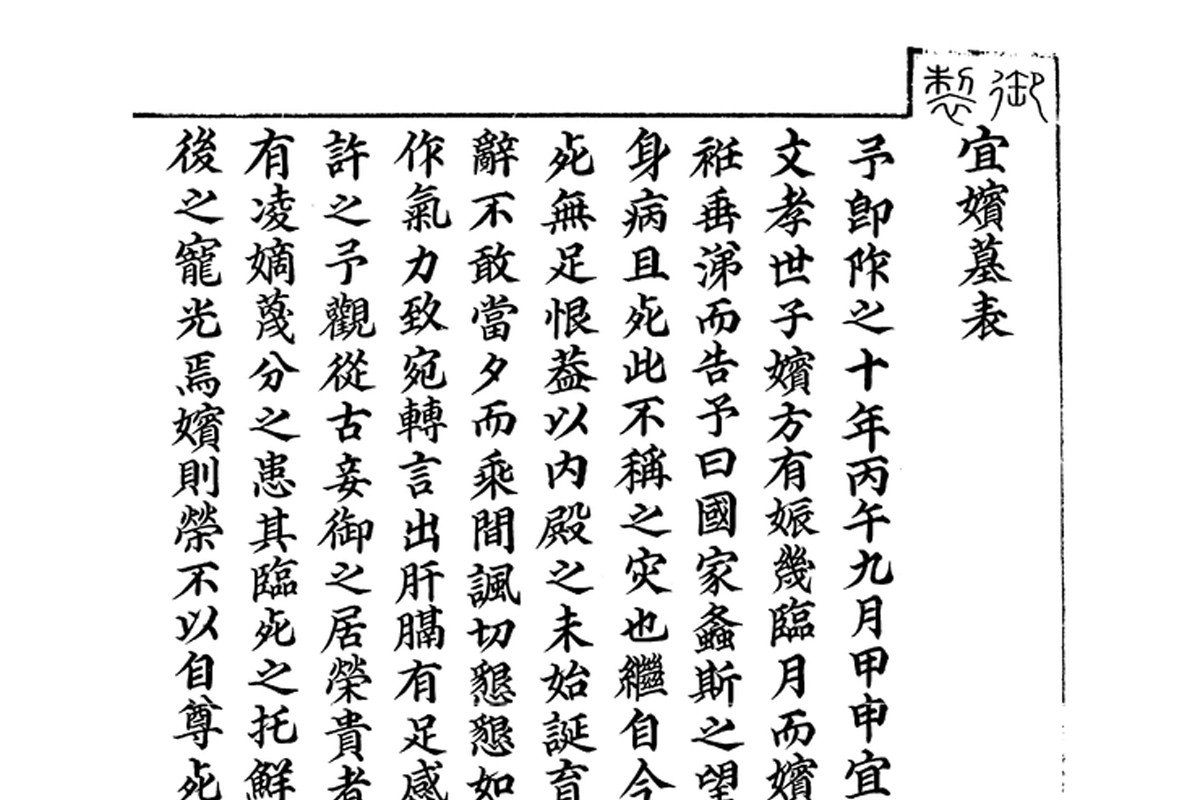 御製
宜嬪墓表
予卽阼之十年丙午九月甲申宜
文孝世子嬪方有娠幾臨月而嬪
袵垂涕而告予曰國家螽斯之望
身病且死此不稱之灾也繼自今
死無足恨葢以内殿之未始誕育
辭不敢當夕而乘間諷切懇懇如
作氣力致宛轉言出肝膈有足感
許之予觀從古妾御之居榮貴者
有凌嫡蔑分之患其臨死之托鮮
後之寵光焉嬪則榮不以自尊死